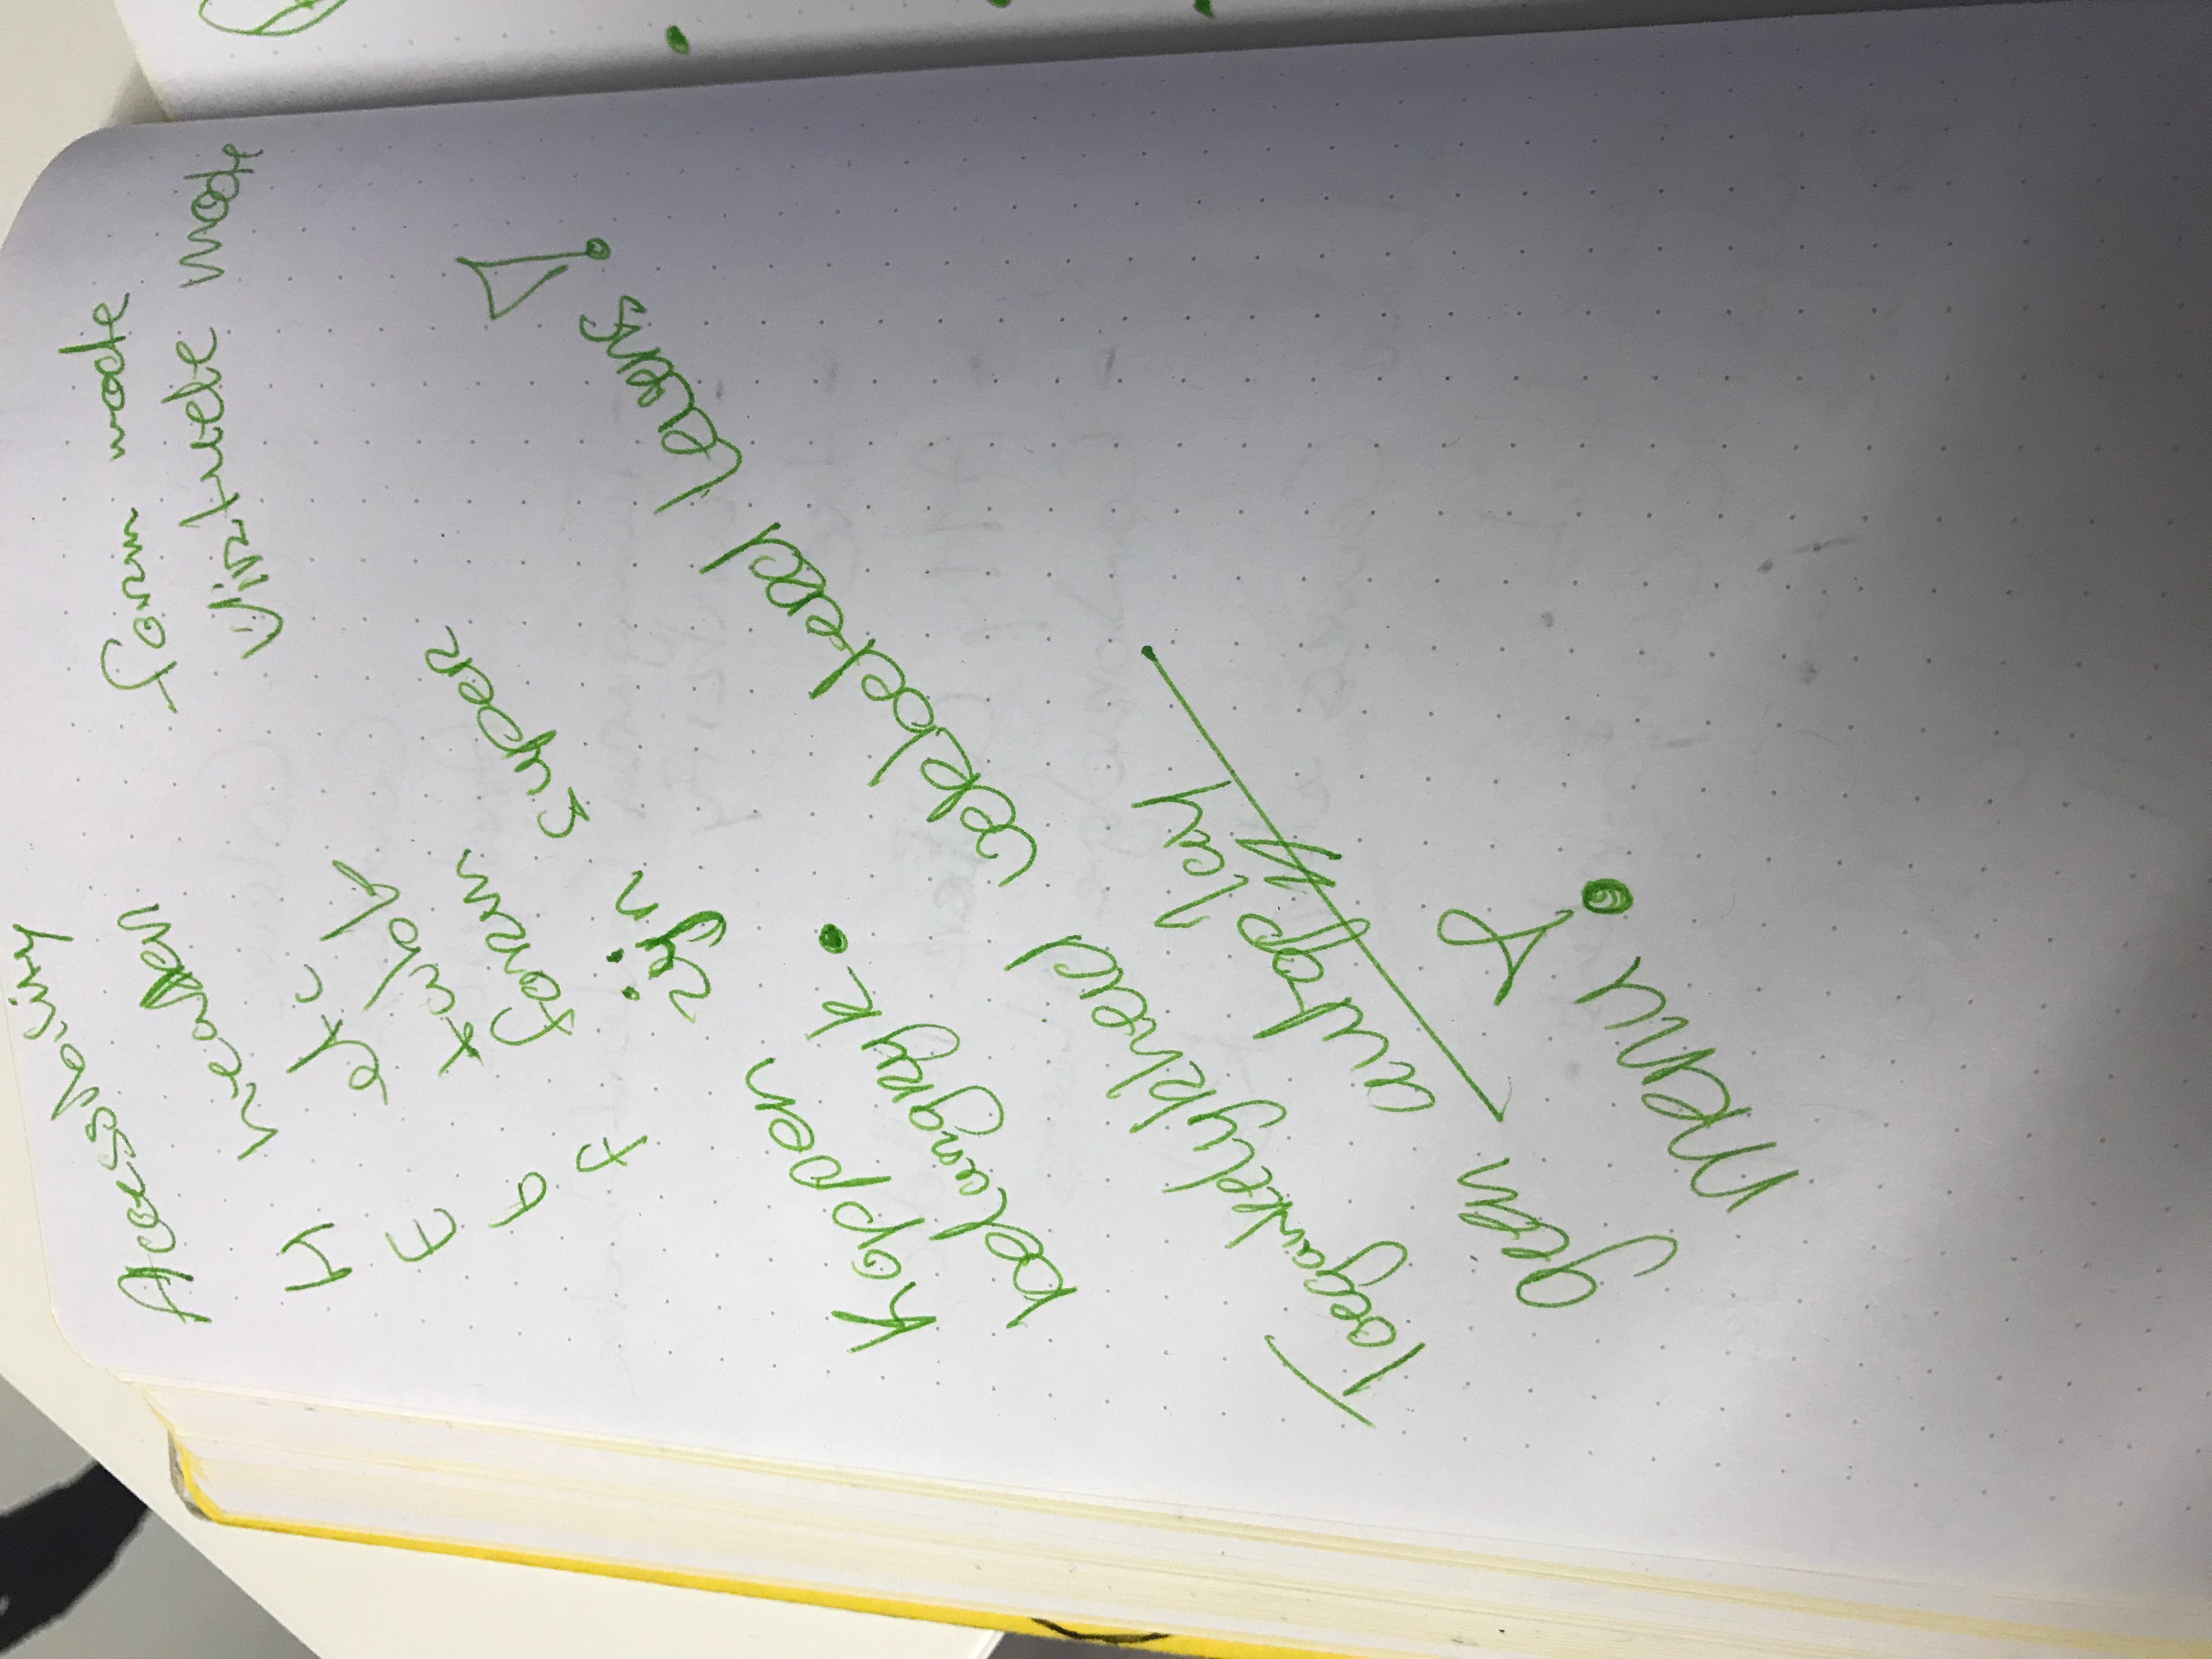 Accessibility
H header
E etc
b tabl
f form
form mode
Virtuele mode
Koppen zijn super
belangryk.
Toegankelykheid verbeterd levens!
geen autoplay
menu!